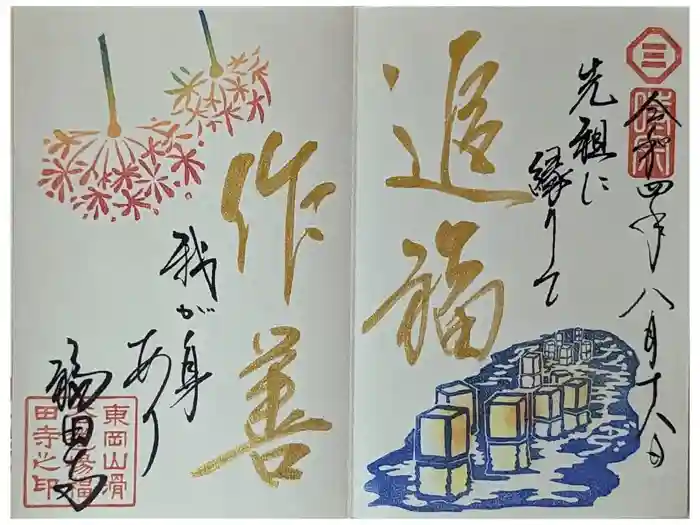 令和四年八月十八日
先祖に
縁りて
追福
作善
我が身
あり
福田寺
東岡山滑
田寺之印
三